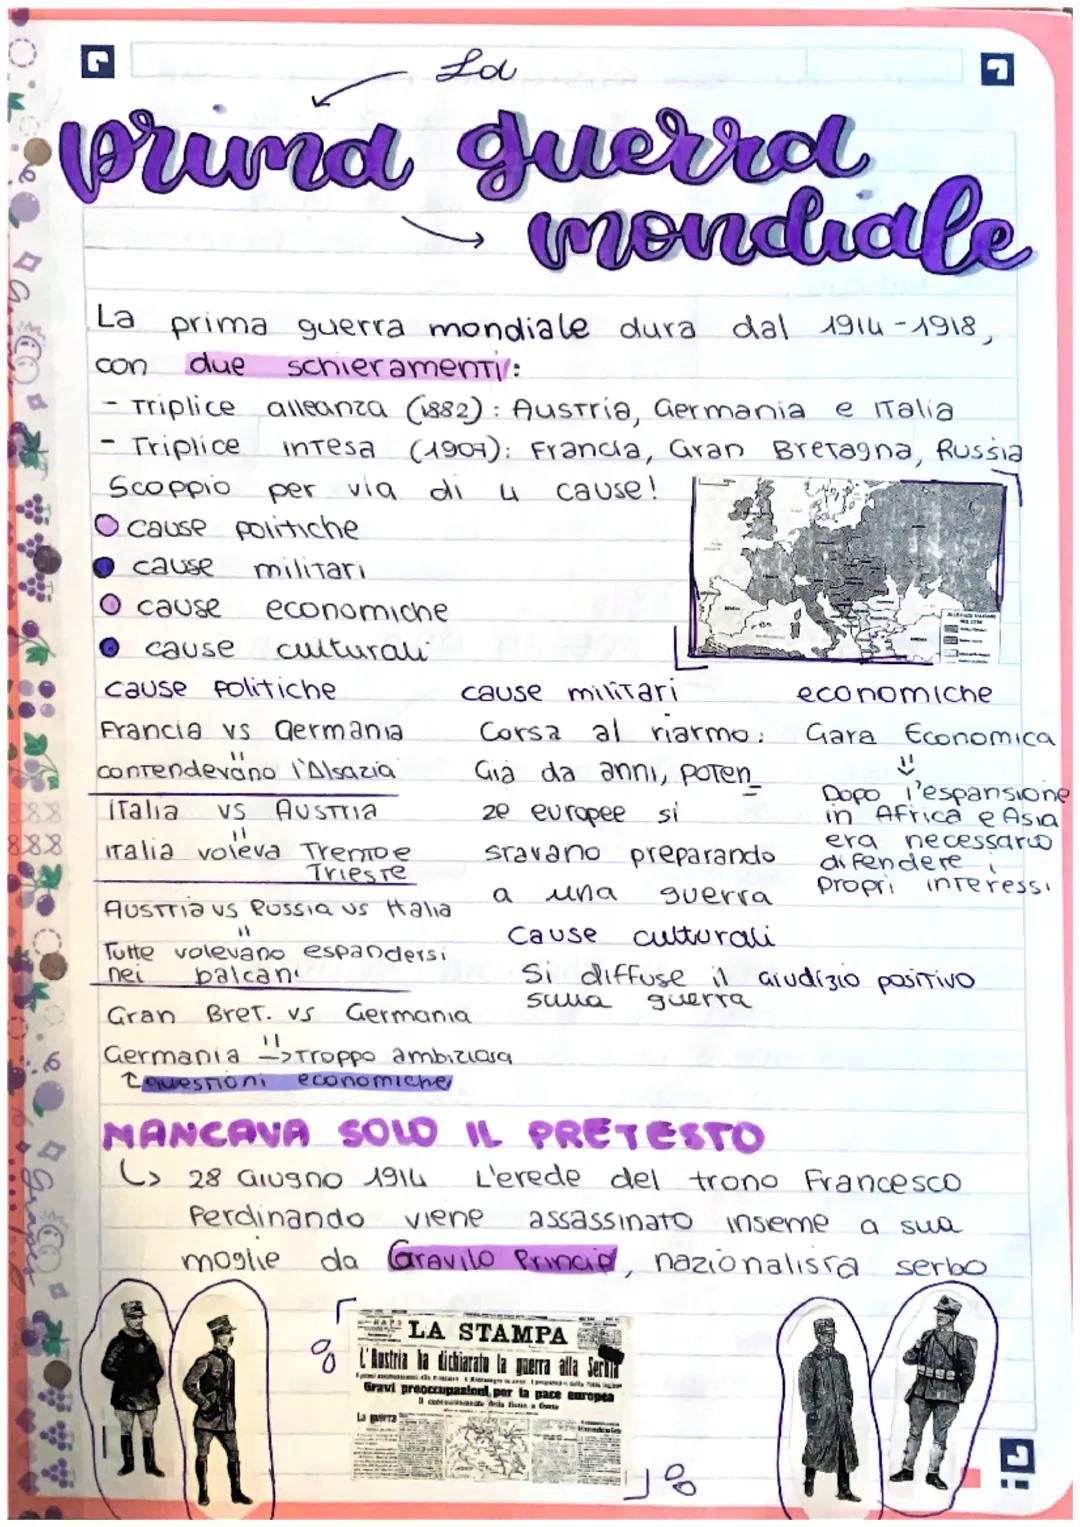 La
prima guerra
mondiale
La prima guerra mondiale dura dal 1914-1918,
con due schieramenti:
- Triplice alleanza (1882): Austria, Germania e Italia
- Triplice intesa (1907): Francia, Gran Bretagna, Russia
Scoppio per via di 4 cause!
cause politiche
cause militari
cause economiche
cause culturali
cause politiche
Francia vs Germania
"
contendevano l'Alsazia
Italia vs Austria
"
Italia voleva Trento e
Trieste
Austria vs Russia vs Italia
"
Tutte volevano espandersi
nei balcani
Gran Bret. vs Germania
"
Germania -> troppo ambiziosa
↑ questioni economiche
cause militari
Corsa al riarmo:
Già da anni, poten_
ze europee si
stavano preparando
a una guerra
economiche
Gara Economica
Dopo l'espansione
in Africa e Asia
era necessario
difendere i
propri interessi
cause culturali
Si diffuse il giudizio positivo
sulla guerra
MANCAVA SOLO IL PRETESTO
↳ 28 Giugno 1914 L'erede del trono Francesco
Ferdinando viene assassinato insieme a sua
moglie da Gravilo Princip, nazionalista serbo
LA STAMPA
L'Austria ha dichiarato la guerra alla Serbia
Gravi preoccupazioni per la pace europea
La guerra